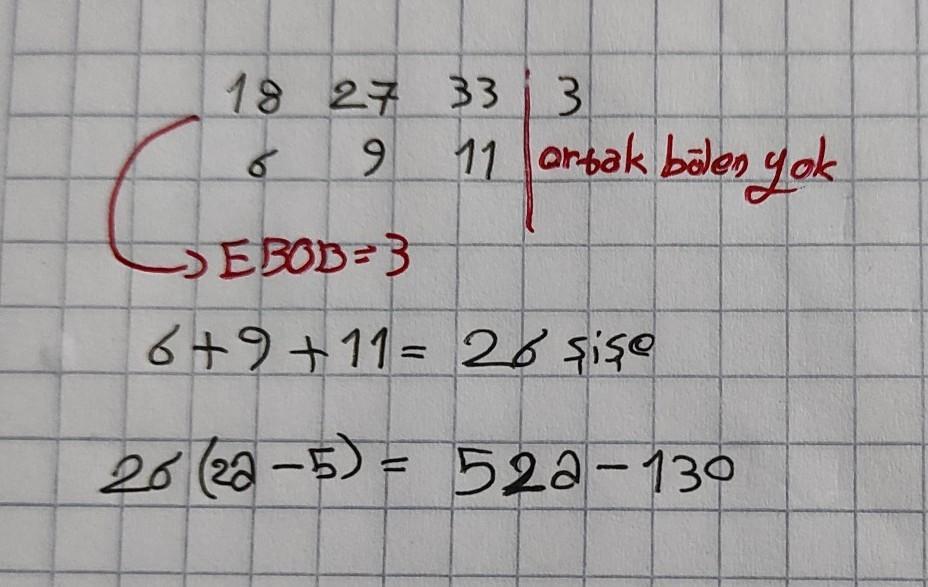 18 27 33 | 3
6 9 11 | ortak bölen yok
→ EBOB = 3
6 + 9 + 11 = 26 şişe
26 (2a - 5) = 52a - 130